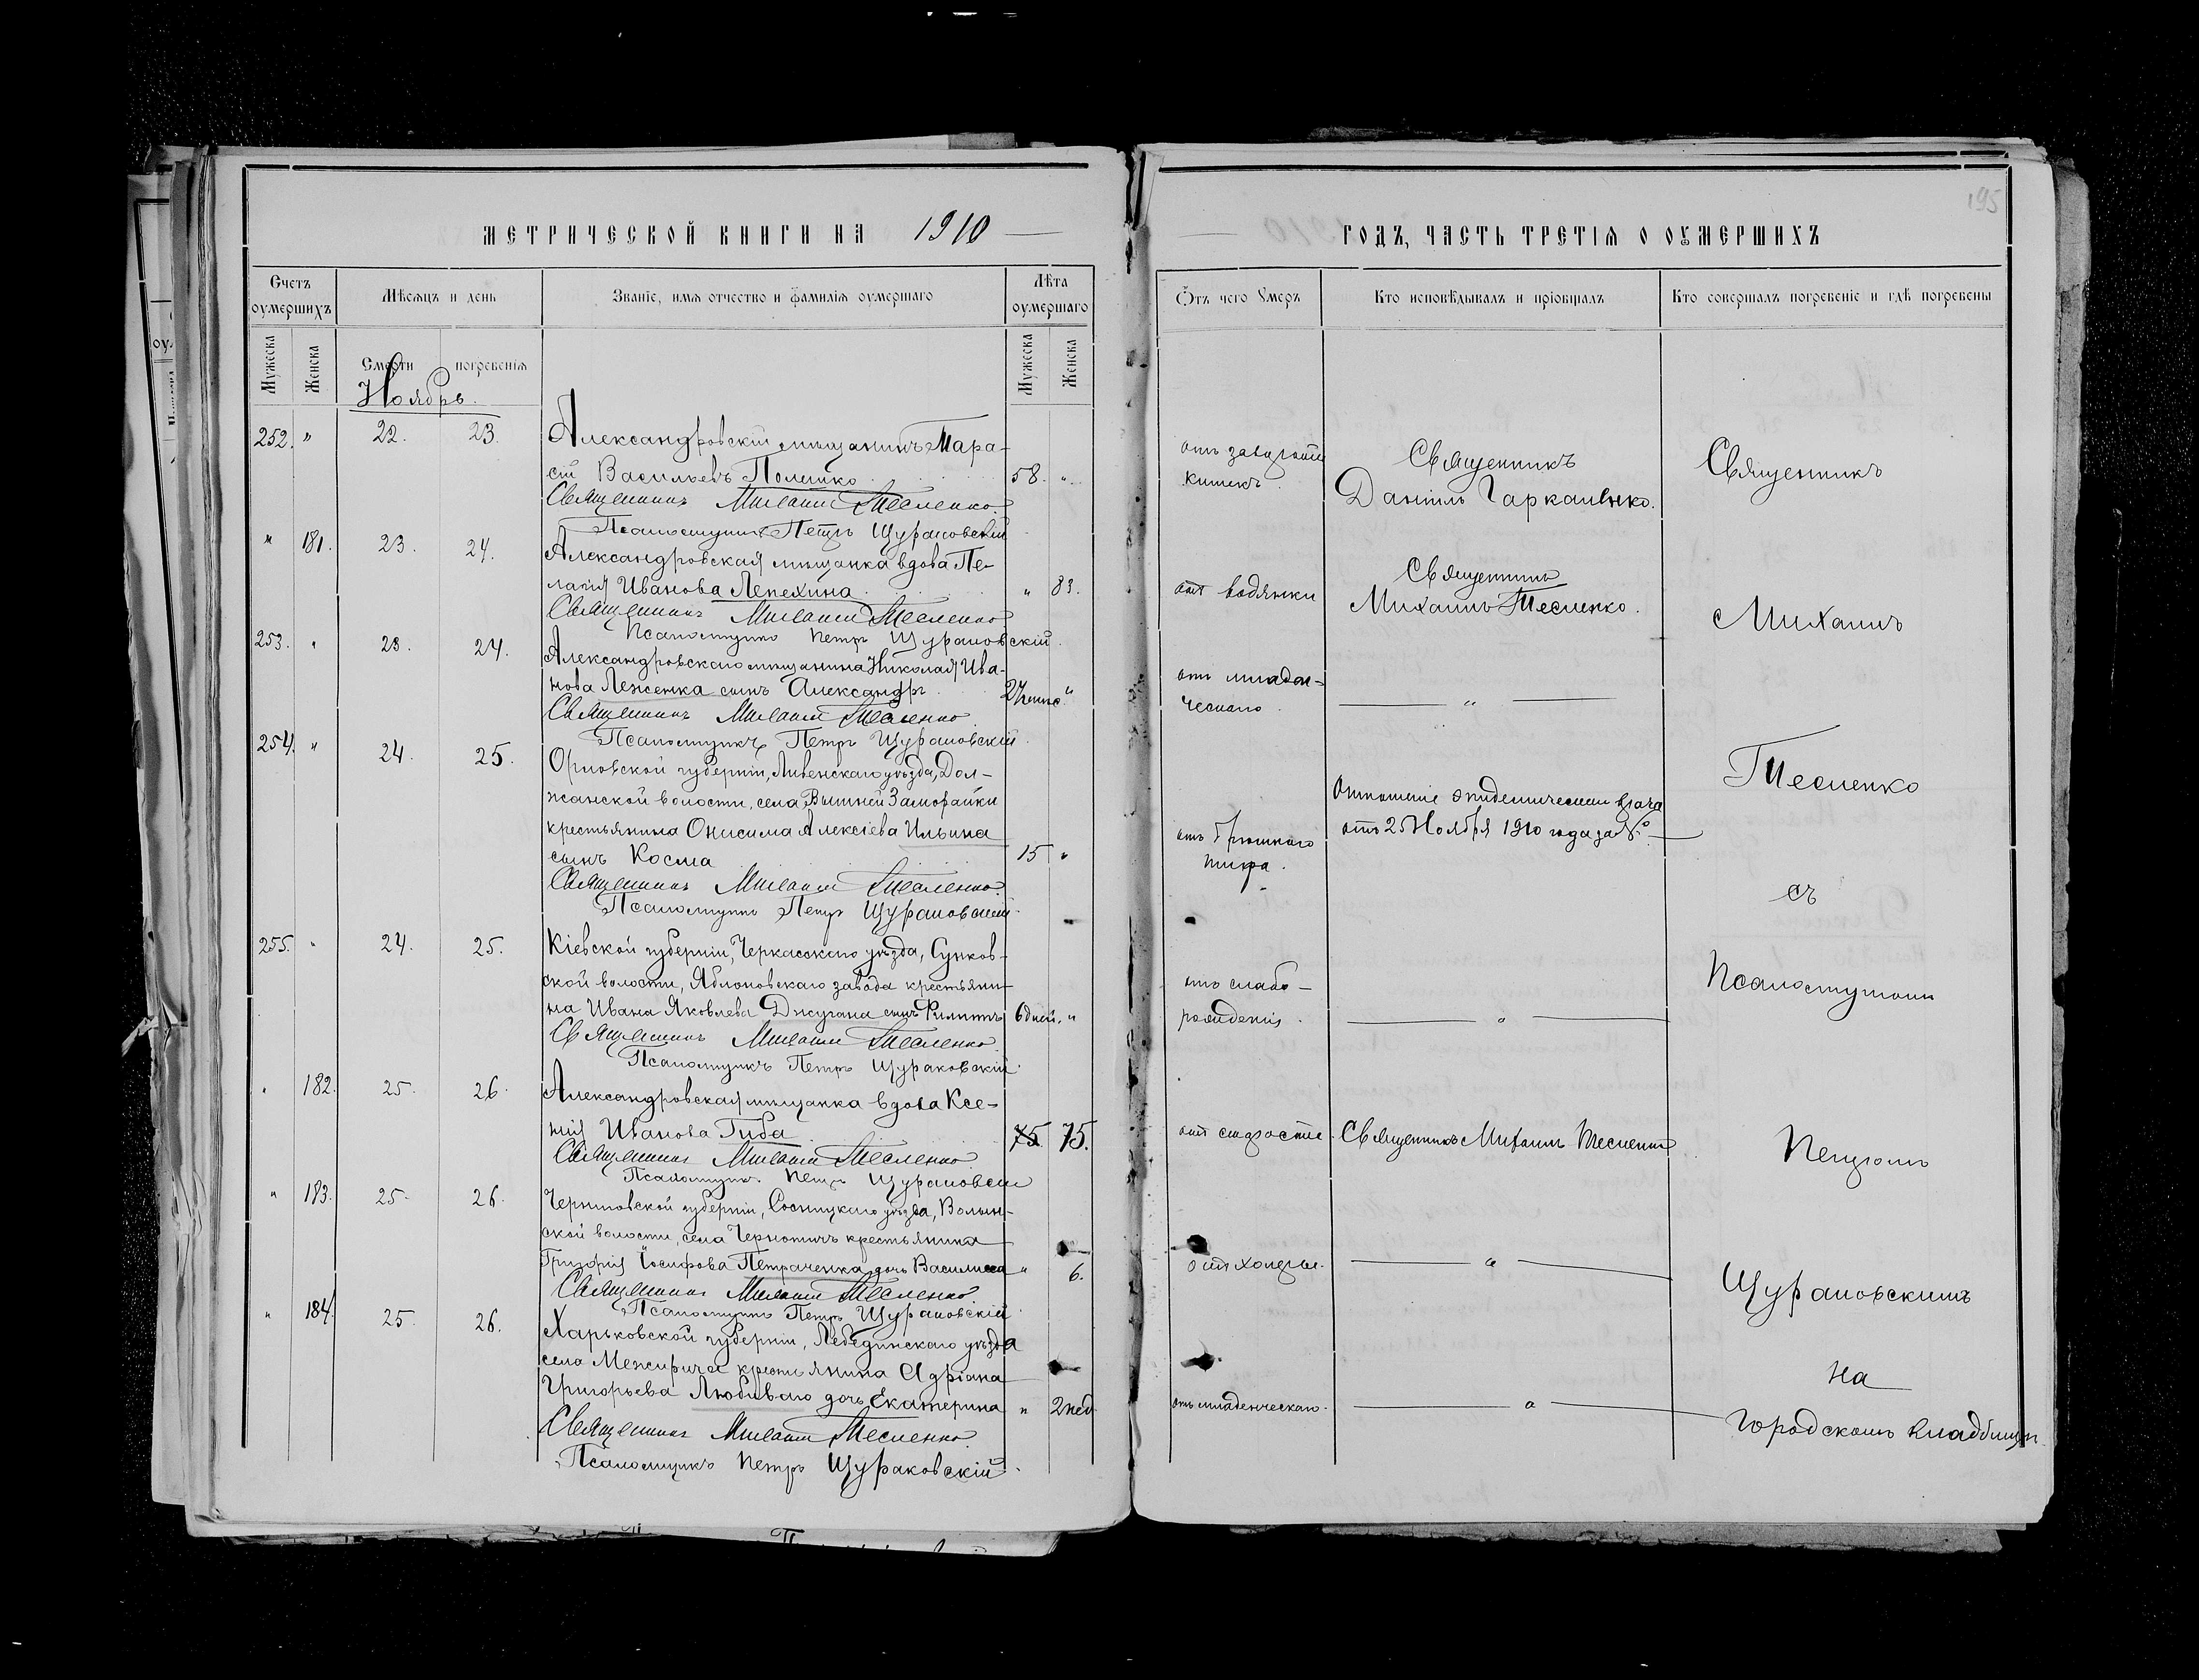 МЕТРИЧЕСКОЙ КНИГИ НА 1910
Счетъ оумершихъ
Мѣсяцъ и день
Званіе, имя отчество и фамилія оумершаго
Лѣта оумершаго
Мужеска
Женска
Смерти
погребенія
Мужеска
Женска
Ноябрь.
252. " 22. 23. Александровскій мѣщанинъ Тара-
сій Васильевъ Полешко 58. "
Священникъ Михаилъ Тесленко
Псаломщикъ Петръ Щураковскій
" 181. 23. 24. Александровская мѣщанка вдова Пе-
лагія Иванова Лепехина " 83.
Священникъ Михаилъ Тесленко
Псаломщикъ Петръ Щураковскій.
253. " 23. 24. Александровскаго мѣщанина Николая Ива-
нова Леженка сынъ Александръ "
Священникъ Михаилъ Тесленко
Псаломщикъ Петръ Щураковскій.
254. " 24. 25. Орловской губерніи, Ливенскаго уѣзда, Дол-
жанской волости, села Вышней Заморайки
крестьянина Онисима Алексіева Ильина
сынъ Косма 15 "
Священникъ Михаилъ Тесленко.
Псаломщикъ Петръ Щураковскій.
255. " 24. 25. Кіевской губерніи, Черкасскаго уѣзда, Сунков-
ской волости, Яблоновскаго завода крестьяни-
на Ивана Яковлева Джугана сынъ Филиппъ 6 дней. "
Священникъ Михаилъ Тесленко
Псаломщикъ Петръ Щураковскій.
" 182. 25. 26. Александровская мѣщанка вдова Ксе-
нія Иванова Гиба 75 75.
Священникъ Михаилъ Тесленко.
Псаломщикъ Петръ Щураковскій
" 183. 25. 26. Черниговской губерніи, Сосницкаго уѣзда, Волын-
ской волости, села Чернотичъ крестьянина
Григорія Іосифова Петраченка дочь Василиса " 6.
Священникъ Михаилъ Тесленко
Псаломщикъ Петръ Щураковскій.
" 184. 25. 26. Харьковской губерніи, Лебединскаго уѣзда
села Межирича крестьянина Адріана
Григорьева Любиваго дочь Екатерина " 2 нед.
Священникъ Михаилъ Тесленко.
Псаломщикъ Петръ Щураковскій.
195
ГОДЪ, ЧАСТЬ ТРЕТІЯ О ОУМЕРШИХЪ
Ѿтъ чего Умеръ
Кто исповѣдывалъ и пріобщалъ
Кто совершалъ погребеніе и гдѣ погребены
кишекъ.
Священникъ
Даніилъ Гаркавенко.
отъ водянки
Священникъ
Михаилъ Тесленко.
отъ младен-
ческаго.
"
отъ брюшного
тифа.
Отношеніе эпидемическаго врача
отъ 25 Ноября 1910 года за №
отъ слабо-
рожденія.
"
отъ старости. Священникъ Михаилъ Тесленко
отъ холеры. "
отъ младенческаго. "
Священникъ
Михаилъ
Тесленко
съ
Псаломщикомъ
Петромъ
Щураковскимъ
на
городскомъ кладбищѣ.